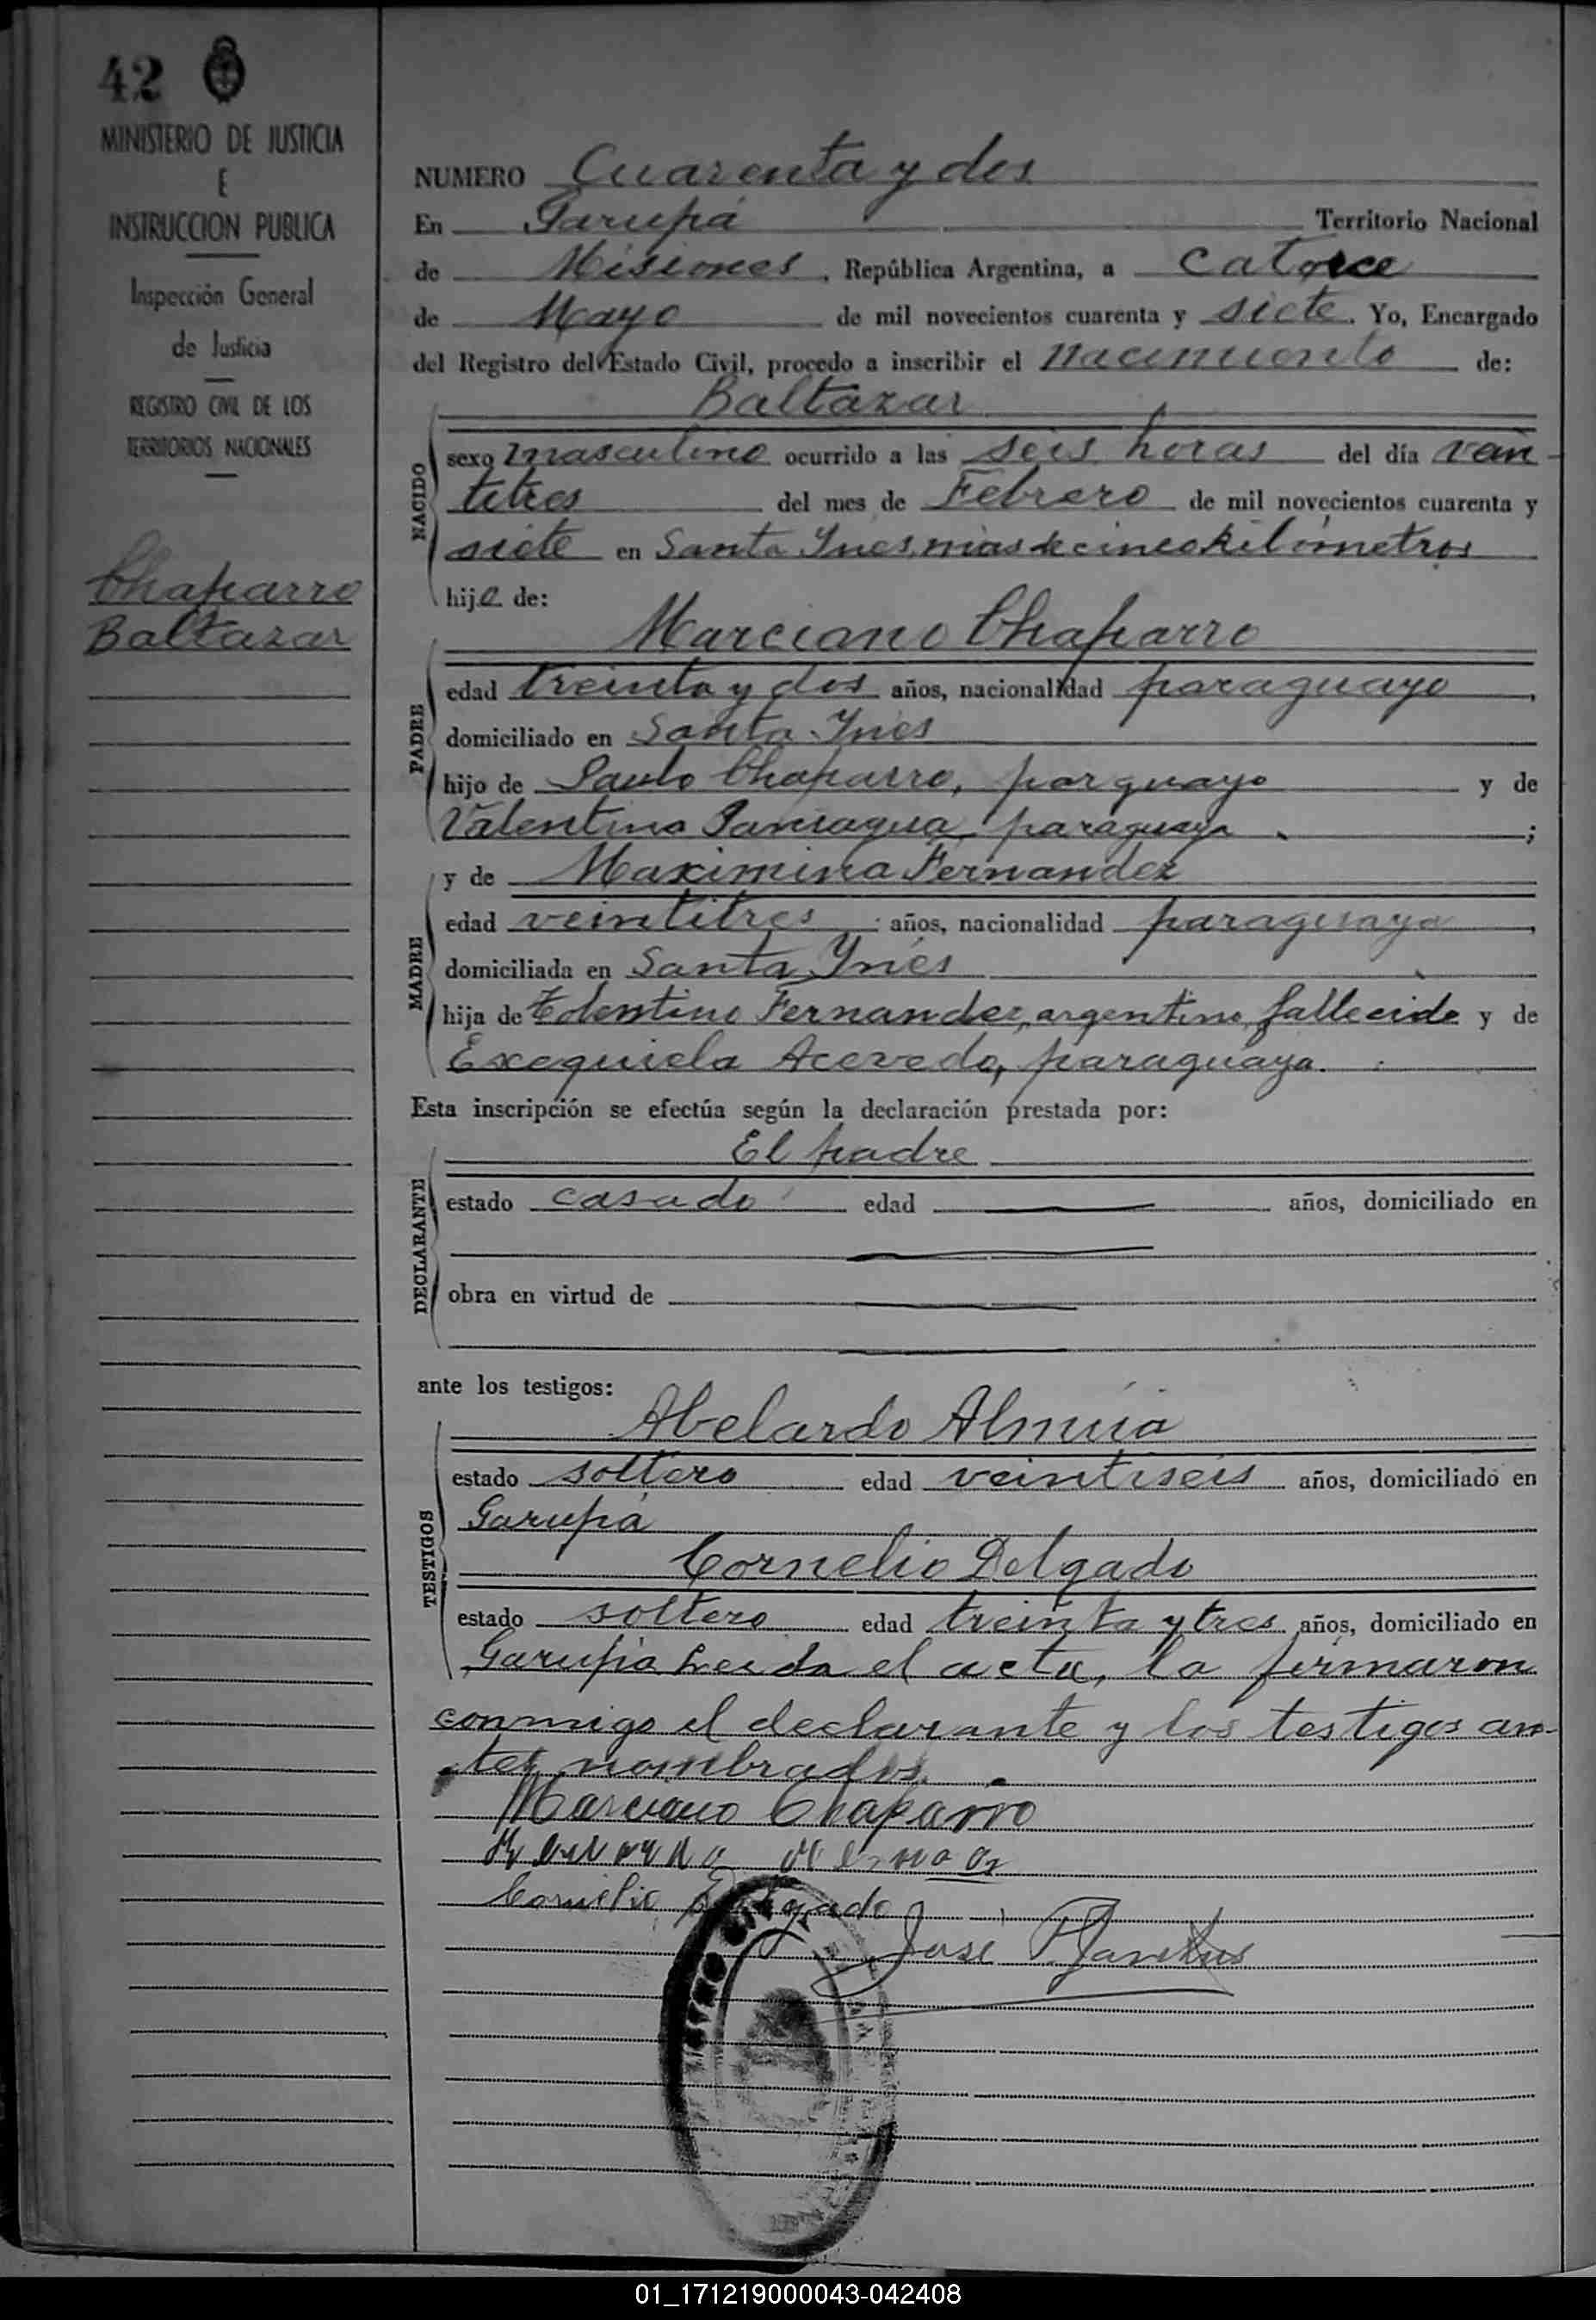 42
MINISTERIO DE JUSTICIA
E
INSTRUCCION PUBLICA
Inspección General
de Justicia
REGISTRO CIVIL DE LOS
TERRITORIOS NACIONALES
Chaparro
Baltazar
NUMERO Cuarenta y dos
En Garupá Territorio Nacional
de Misiones, República Argentina, a catorce
de Mayo de mil novecientos cuarenta y siete. Yo, Encargado
del Registro del Estado Civil, procedo a inscribir el nacimiento de:
Baltazar
NACIDO
sexo masculino ocurrido a las seis horas del día vein-
titres del mes de Febrero de mil novecientos cuarenta y
siete en Santa Ynes, mas de cinco kilómetros
hijo de:
Marciano Chaparro
PADRE
edad treinta y dos años, nacionalidad paraguayo,
domiciliado en Santa Ynés
hijo de Paulo Chaparro, parguayo y de
Valentina paraguaya;
y de Maximina Fernandez
MADRE
edad veintitres años, nacionalidad paraguaya,
domiciliada en Santa Ynés
hija de Tolentino Fernandez, argentino, fallecido y de
Exequiela Acevedo, paraguaya.
Esta inscripción se efectúa según la declaración prestada por:
El padre
DECLARANTE
estado casado edad años, domiciliado en
obra en virtud de
ante los testigos:
Abelardo
TESTIGOS
estado soltero edad veintiseis años, domiciliado en
Garupá
Cornelio Delgado
estado soltero edad treinta y tres años, domiciliado en
Garupá Leida el acta, la firmaron
conmigo el declarante y los testigos an-
tes nombrados.
Marciano Chaparro
Cornelio Delgado
José
01_171219000043-042408